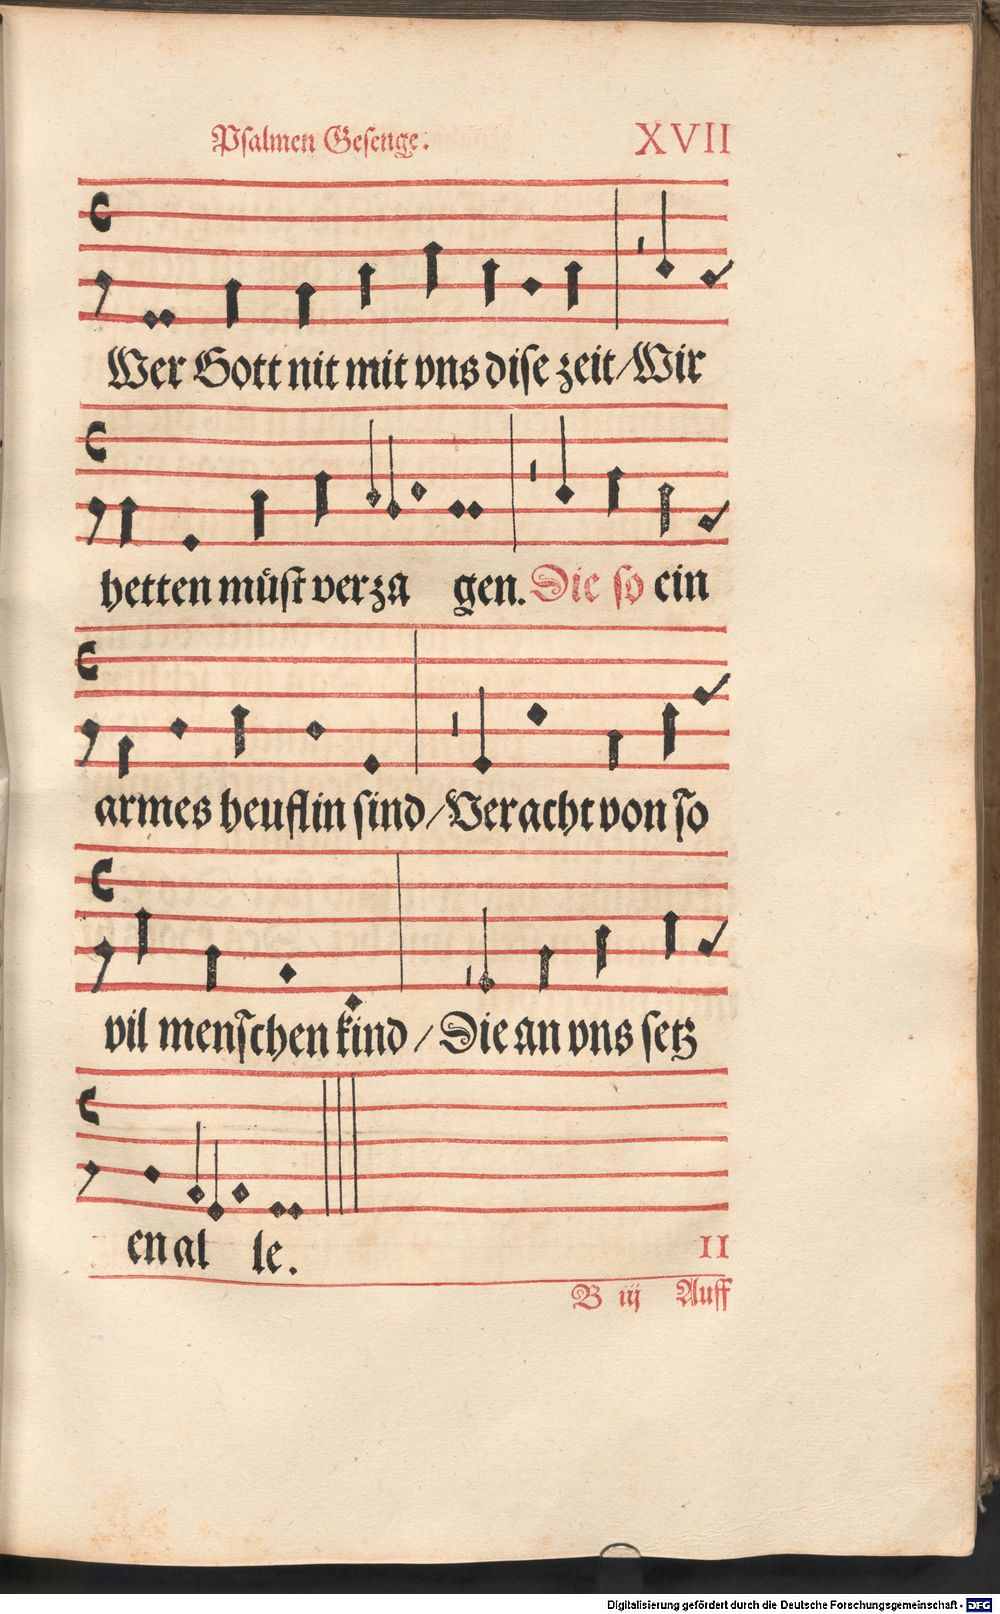 Psalmen Gesenge.
XVII
Wer Gott nit mit vns dise zeit / Wir
hetten müst verza gen. Die so ein
armes heuflin sind / Veracht von so
vil menschen kind / Die an vns setz
en al le.
II
B iij Auff
Digitalisierung gefördert durch die Deutsche Forschungsgemeinschaft - DFG